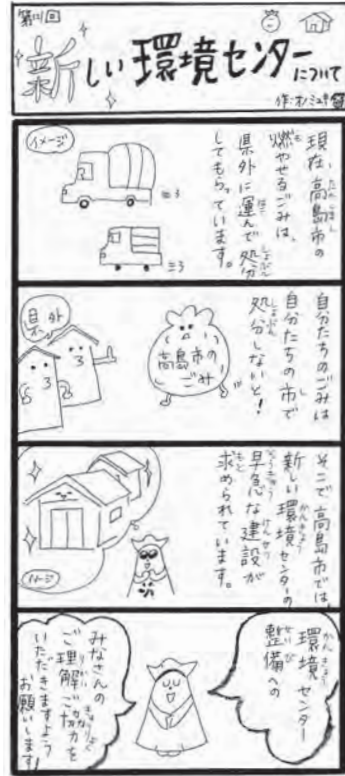 新しい環境センター
について
イメージ
現在、高島市の
燃やせるごみは、
県外に運んで処分
してもらっています。
自分たちのごみは
自分たちの市で
処分しないと!
高島市の
ごみ
県外
そこで高島市では、
新しい環境センターの
早急な建設が
求められています。
イメージ
環境センター
整備への
みなさんの
ご理解ご協力を
いただきますよう
お願いします!